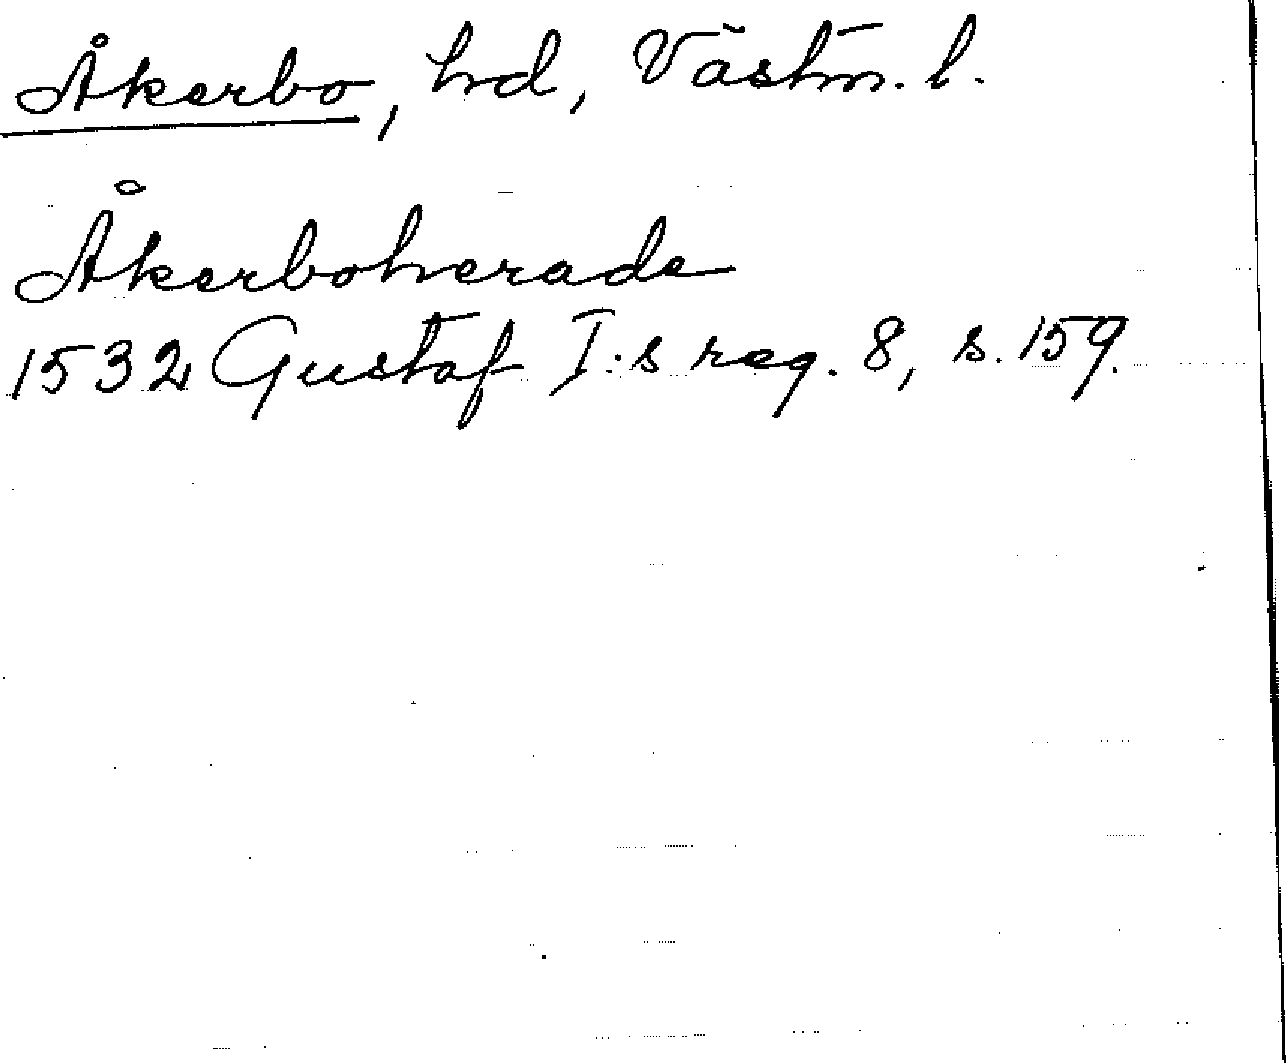 Åkerbo, hd, Västm. l.
Åkerboherade
1532 Gustaf I:s reg. 8, s. 159.